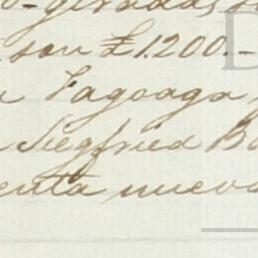 giradas
son £1.200.-
Fagoaga
Siegfried B
enta nueva